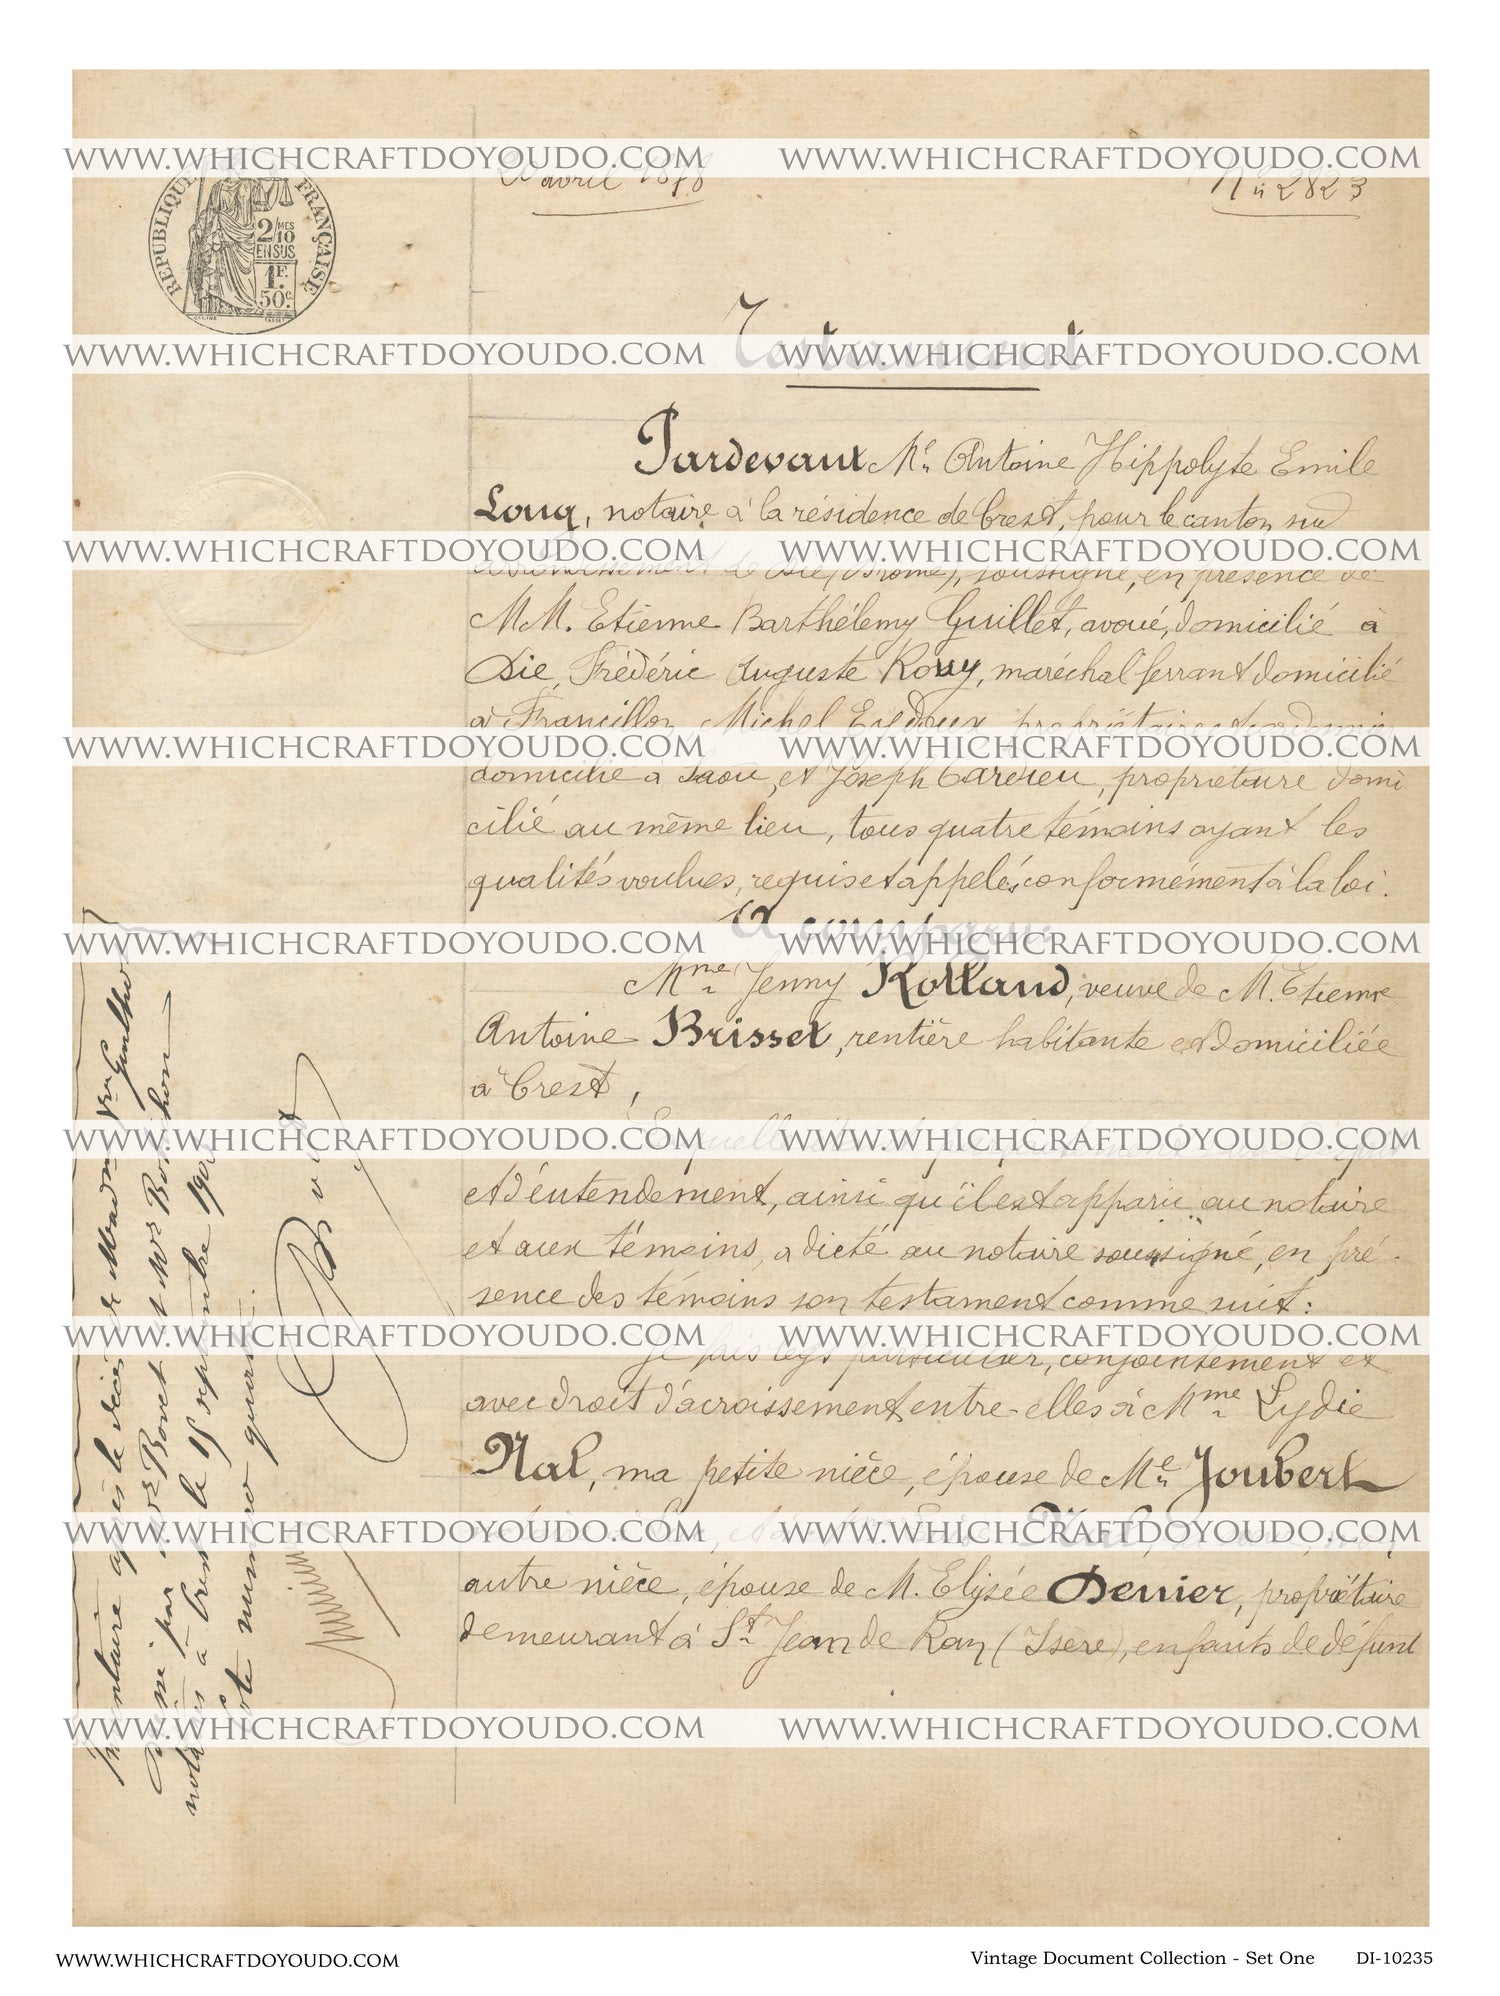 WWW.WHICHCRAFTDOYOUDO.COM WWW.WHICHCRAFTDOYOUDO.COM
avril 18 8 N° 2823
REPUBLIQUE FRANÇAISE
2/10 MES
EN SUS
1F.
50c.
Testament
WWW.WHICHCRAFTDOYOUDO.COM WWW.WHICHCRAFTDOYOUDO.COM
Pardevant Me Antoine Hippolyte Emile
Louq, notaire à la résidence de Crest, pour le canton sud
WWW.WHICHCRAFTDOYOUDO.COM WWW.WHICHCRAFTDOYOUDO.COM
arrondissement de Die (Drôme), soussigné, en présence de
MM. Etienne Barthélemy Guillet, avoué, domicilié à
Die, Frédéric Auguste Rouy, maréchal ferrant domicilié
à Francillon, Michel propriétaire
WWW.WHICHCRAFTDOYOUDO.COM WWW.WHICHCRAFTDOYOUDO.COM
domicilié à Saou, et Joseph Cardieu, propriétaire domi
cilié au même lieu, tous quatre témoins ayant les
qualités voulues, requis et appelés conformément à la loi.
A comparu:
WWW.WHICHCRAFTDOYOUDO.COM WWW.WHICHCRAFTDOYOUDO.COM
Mme Jenny Rolland, veuve de M. Etienne
Antoine Brisset, rentière habitante et domiciliée
à Crest,
WWW.WHICHCRAFTDOYOUDO.COM WWW.WHICHCRAFTDOYOUDO.COM
et d'entendement, ainsi qu'il est apparu au notaire
et aux témoins, a dicté au notaire soussigné, en pré-
sence des témoins son testament comme suit:
WWW.WHICHCRAFTDOYOUDO.COM WWW.WHICHCRAFTDOYOUDO.COM
Je fais legs particulier, conjointement et
avec droit d'acroissement entre-elles à Mme Lydie
Nal, ma petite nièce, épouse de Me Joubert
WWW.WHICHCRAFTDOYOUDO.COM WWW.WHICHCRAFTDOYOUDO.COM
Nal,
autre nièce, épouse de M. Elysée Denier, propriétaire
demeurant à St Jean de Ran (Isère), enfants de défunt
WWW.WHICHCRAFTDOYOUDO.COM WWW.WHICHCRAFTDOYOUDO.COM
Inventaire après le décès de Madme Vve
par Bovet et Me
notaires à Crest le 15 septembre
numéro
Bovet
WWW.WHICHCRAFTDOYOUDO.COM Vintage Document Collection - Set One DI-10235